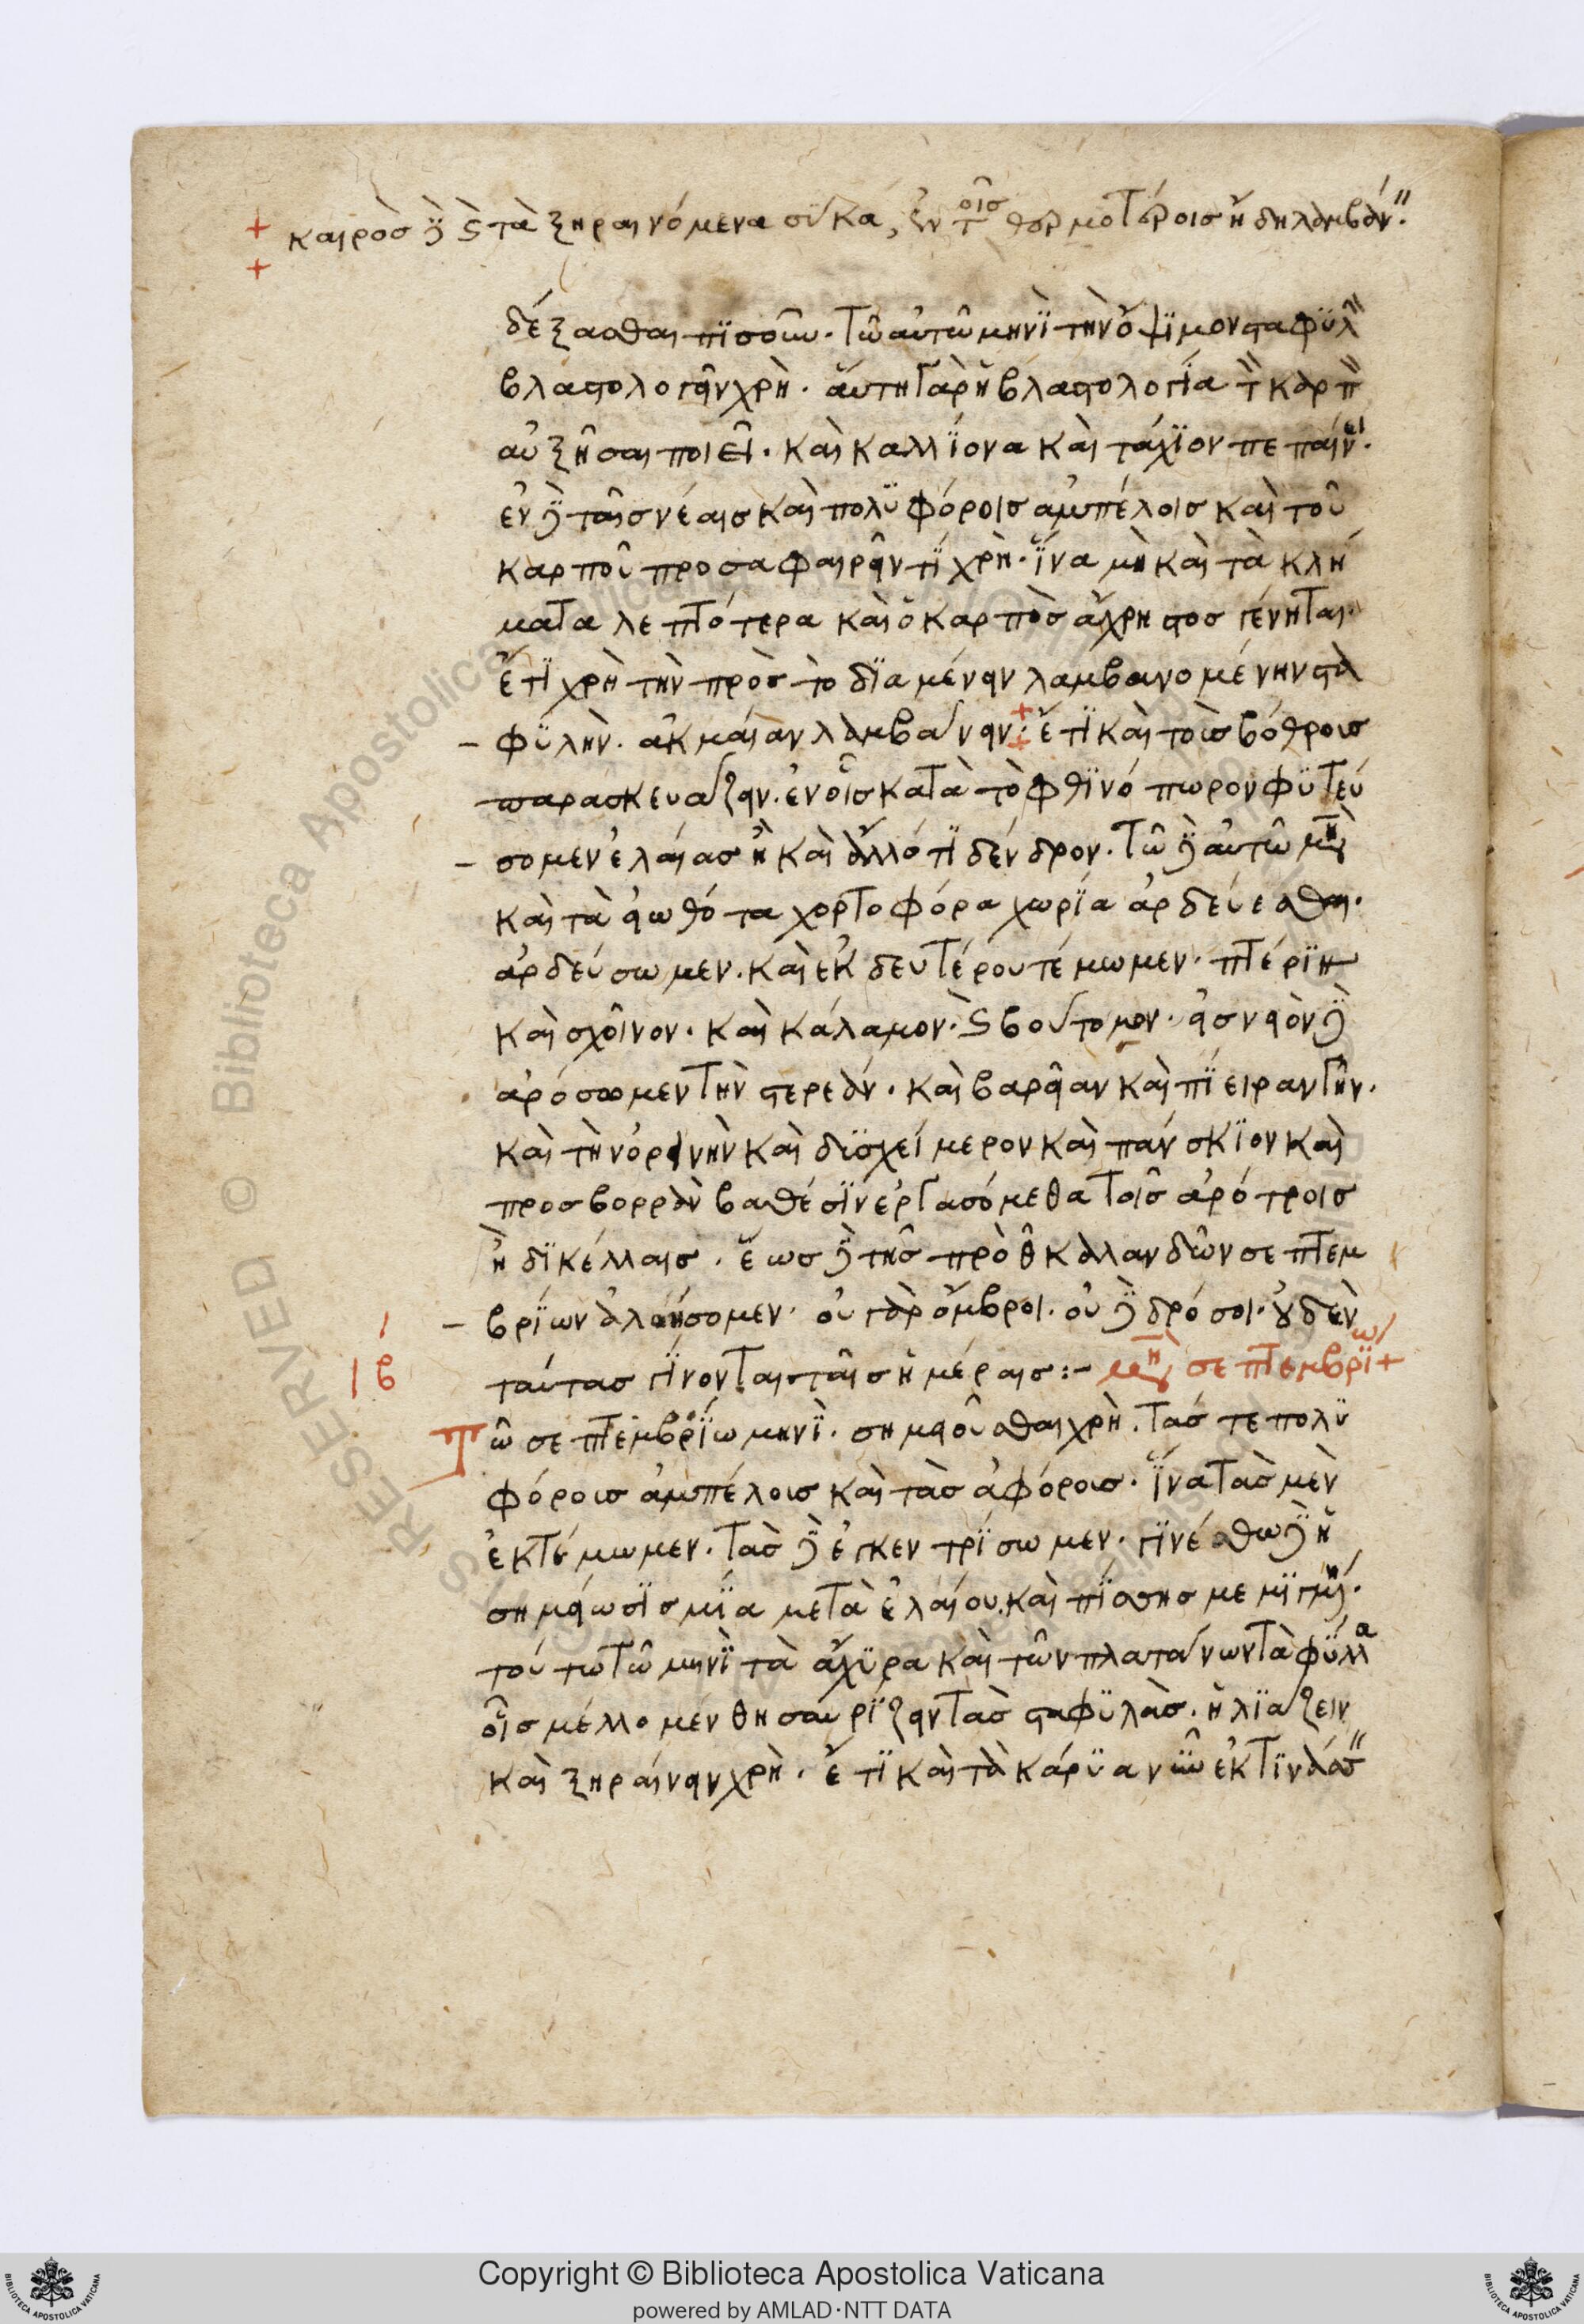 καιρὸσ δὲ καὶ τὰ ξηραινόμενα σῦκα, ἐν τοῖσ θερμοτέροισ ἤδη λαμβάν
δέξασθαι πϊσοῦν. τῶ αὐτῶ μηνῒ τὴν ὄψϊμον σταφϋλ
βλαστολογεῖν χρὴ. αὕτη γὰρ ἡ βλαστολογία τ καρπ
αὐξῆσαι ποιεῖ. καὶ καλλΐονα καὶ τάχϊον πεπαίνει.
ἐν δὲ ταῖσ νέαισ καὶ πολϋφόροισ ἀμπέλοισ καὶ τοῦ
καρποῦ προσαφαιρεῖν τϊ χρὴ. ἵνα μὴ καὶ τὰ κλή
ματα λεπτότερα καὶ ὁ καρπὸσ ἄχρηστοσ γένηται.
ἔτϊ χρὴ τὴν πρὸσ τὸ δϊαμένειν λαμβανομένην στα
φϋλὴν. ἀκμαίαν λαμβάνειν: ἔτϊ καὶ τοὺσ βόθρουσ
παρασκευάζειν. ἐν οἷσ κατὰ τὸ φθϊνόπωρον φϋτεύ
σομεν ἐλαίασ ἢ καὶ ἄλλό τϊ δένδρον. τῶ δὲ αὐτῶ μηνὶ
καὶ τὰ εἰωθότα χορτοφόρα χωρΐα ἀρδεύεσθαι.
ἀρδεύσωμεν. καὶ ἐκ δευτέρου τέμωμεν. πτέρϊν
καὶ σχοῖνον. καὶ κάλαμον. καὶ βούτομον. εἰσ νειὸν δὲ
ἀρόσωμεν τὴν στερεὰν. καὶ βαρεῖαν καὶ πΐειραν γῆν.
καὶ τὴν ὀρεινὴν καὶ δϋσχείμερον καὶ πανσκϊον καὶ
προσ βορρὰν βαθέσϊν ἐργασόμεθα τοῖσ ἀρότροισ
ἢ δϊκέλλαισ. ἕωσ δὲ τῆσ πρὸ θ καλανδῶν σεπτεμ
βρΐων ἀλοήσομεν. οὐ γὰρ ὄμβροι. οὐ δὲ δρόσοι. οὐδὲν
ταύτασ γΐνονται ταῖσ ἡμέραισ:- μηνὶ σεπτεμβρΐω +
ιβ
Τῶ σεπτεμβρΐω μηνῒ. σημειοῦσθαι χρὴ. τάσ τε πολϋ
φόρουσ ἀμπέλουσ καὶ τὰσ ἀφόρουσ. ἵνα τὰσ μὲν
ἐκτέμωμεν. τὰσ δὲ ἐγκεντρΐσωμεν. γϊνέσθω δὲ ἡ
σημείωσϊσ μΐα μετὰ ἐλαίου. καὶ πΐσσησ μεμϊγμένησ.
τούτω τῶ μηνῒ τὰ ἄχϋρα καὶ τῶν πλατάνων τὰ φϋλλα
οἷσ μέλλομεν θησαυρΐζειν τὰσ σταφϋλὰσ. ἡλϊάζειν
καὶ ξηραίνειν χρὴ. ἔτϊ καὶ τὰ κάρϋα νῦν ἐκτϊνάσσ